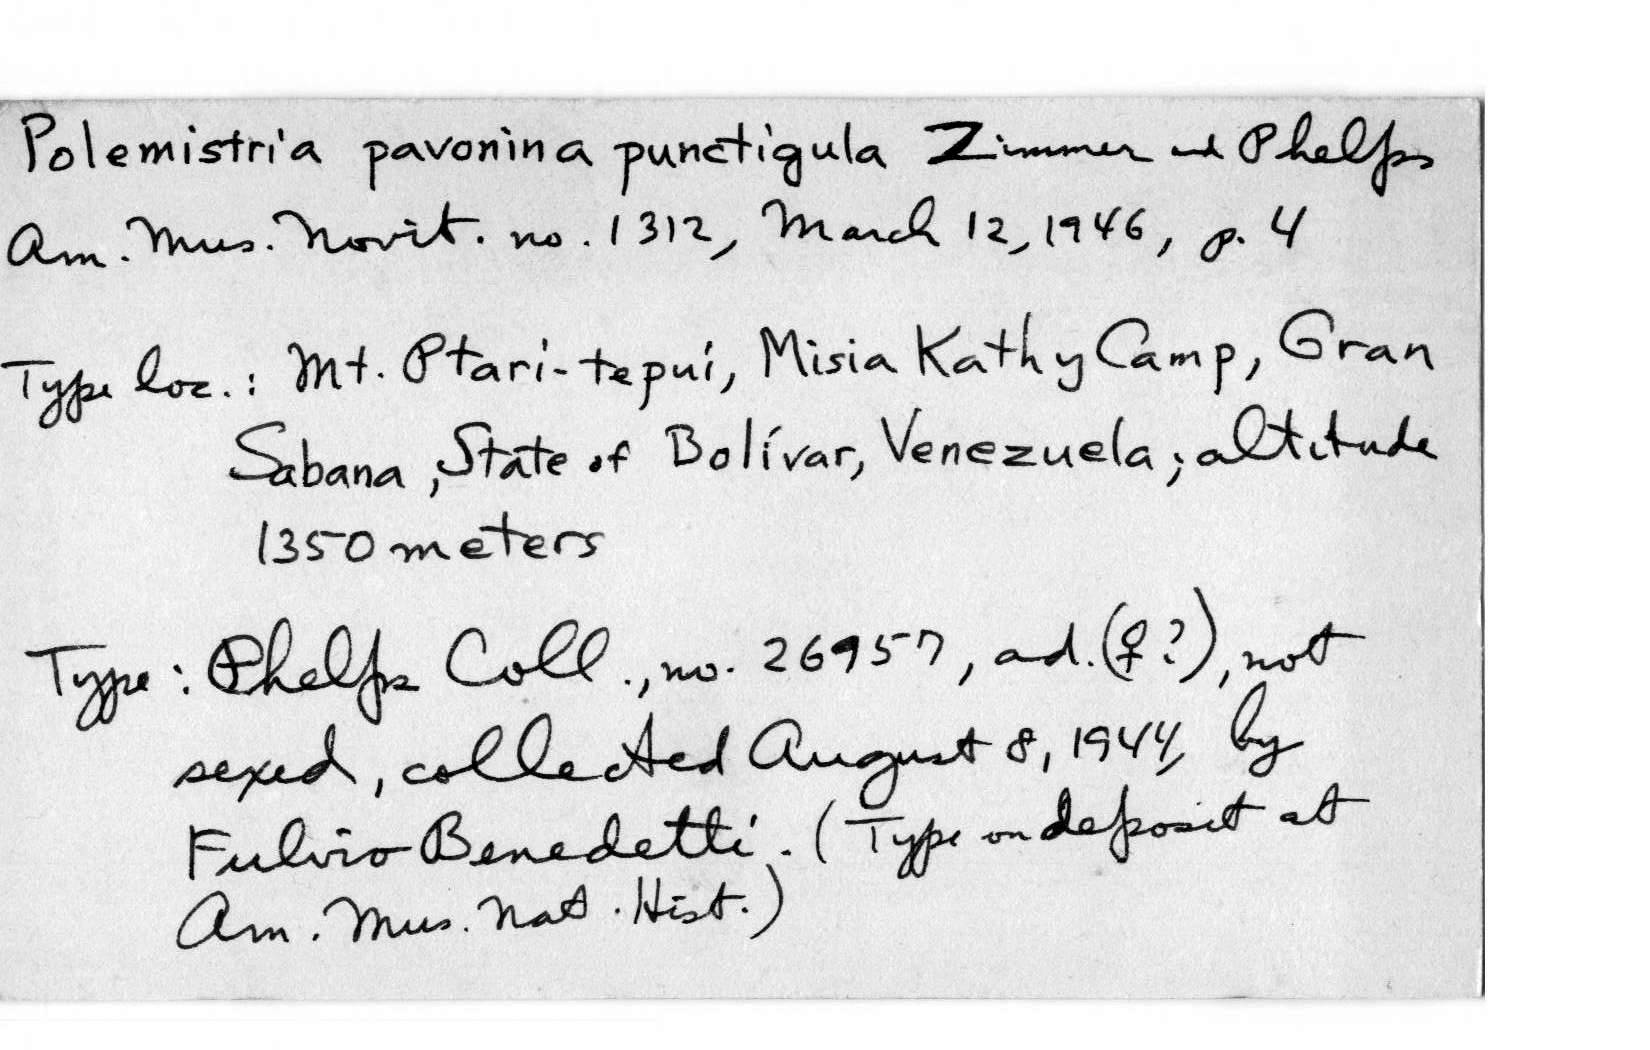 Polemistria pavonina punctigula Zimmer and Phelps
Am. Mus. Novit. no. 1312, March 12, 1946, p. 4
Type loc.: Mt. Ptari-tepui, Misia Kathy Camp, Gran
Sabana, State of Bolívar, Venezuela; altitude
1350 meters
Type: Phelps Coll., no. 26957, ad. (♀?), not
sexed, collected August 8, 1944, by
Fulvio Benedetti. (Type on deposit at
Am. Mus. Nat. Hist.)